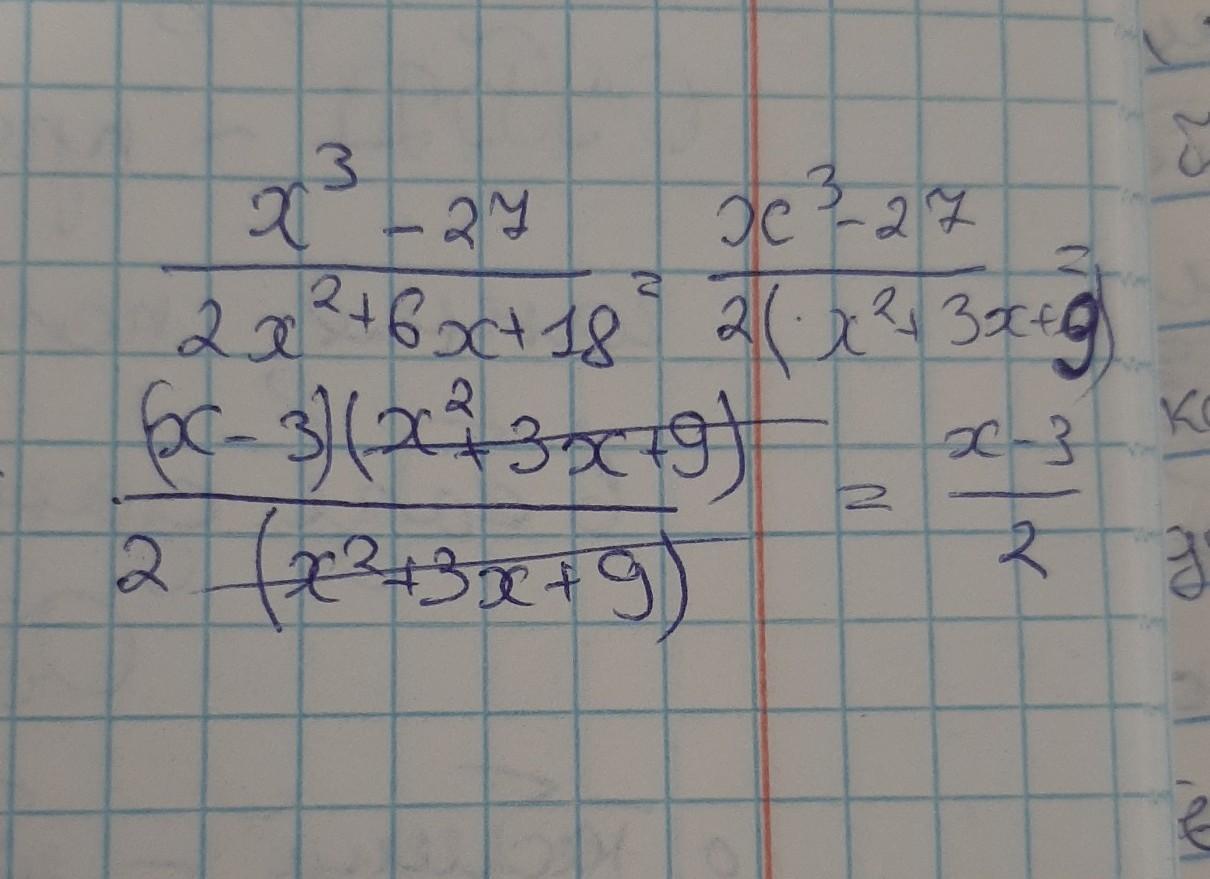 x³ - 27 / 2x² + 6x + 18 = x³ - 27 / 2(x² + 3x + 9) =
(x - 3)(x² + 3x + 9) / 2 (x² + 3x + 9) = x - 3 / 2